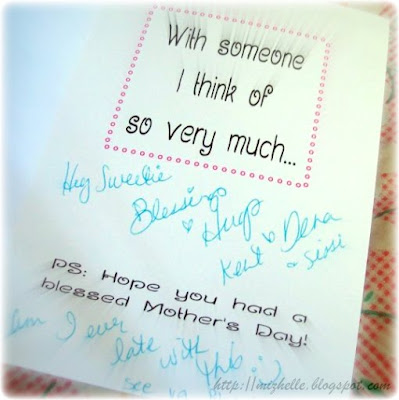 With someone
I think of
so very much...
Hey Sweetie
Blessings
♡ Hugs
Kent ♡ Dena
& Sissi
PS: Hope you had a
blessed Mother's Day!
am I ever
late with
this :)
see
http://mizhelle.blogspot.com